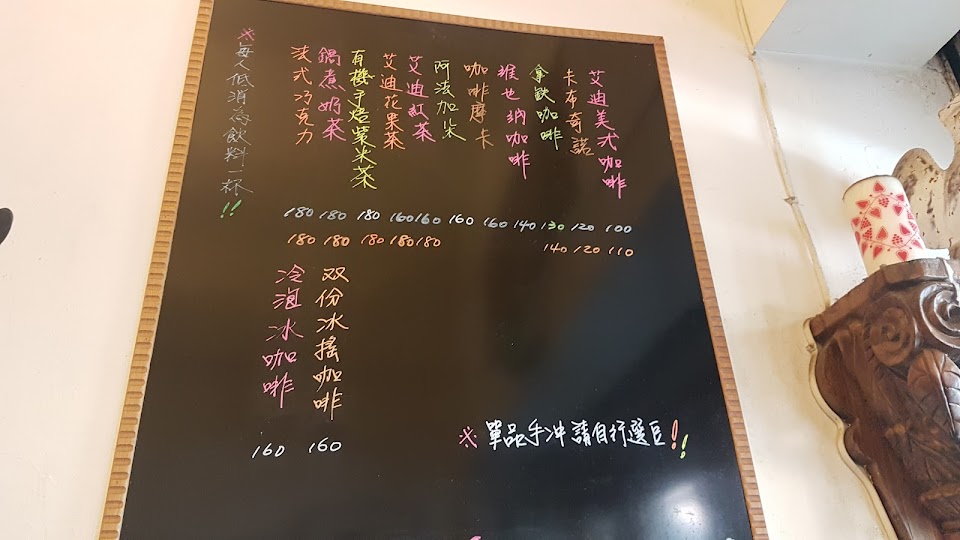 艾迪美式咖啡
卡布奇諾
拿鉄咖啡
維也納咖啡
咖啡摩卡
阿法加朵
艾迪紅茶
艾迪花果茶
有機手焙葉米茶
鍋煮奶茶
法式巧克力
※每人低消為飲料一杯!!
180 180 180 160 160 160 160 140 130 120 100
180 180 180 180 180 140 120 110
双份冰搖咖啡
冷泡冰咖啡
160 160
※單品手冲請自行選豆!!